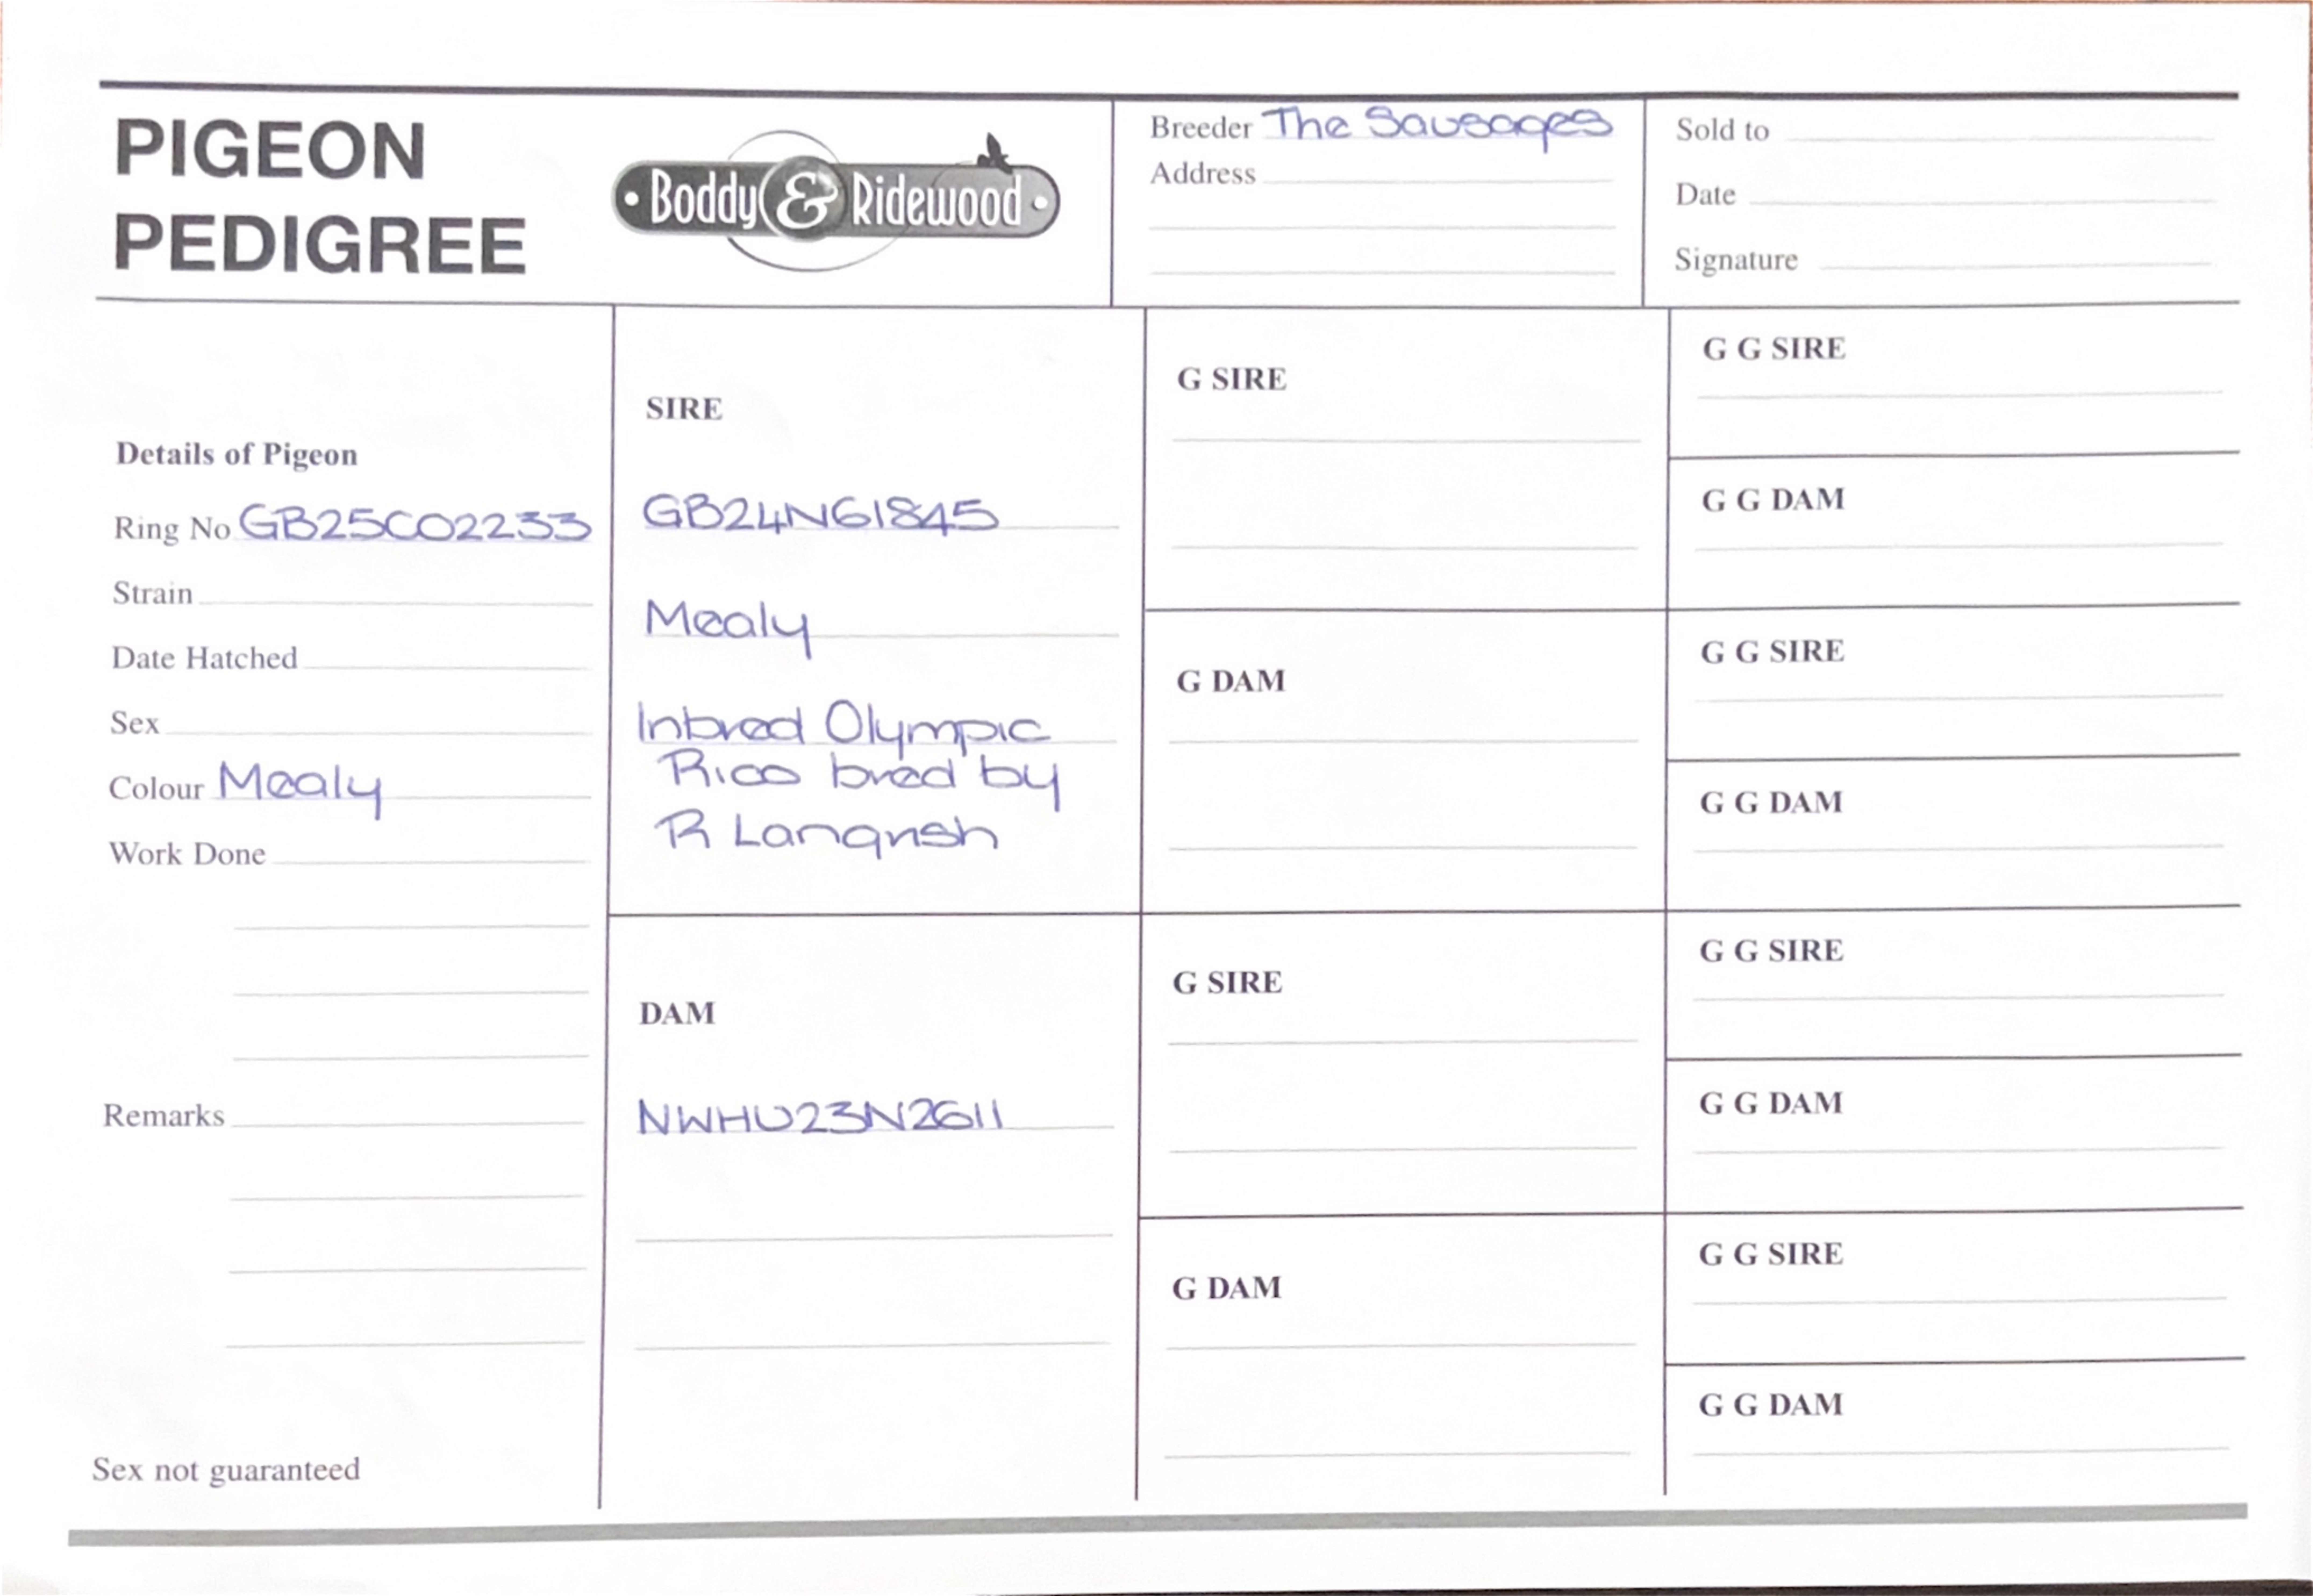 PIGEON
PEDIGREE
Boddy & Ridewood
Breeder The Sausages
Address
Sold to
Date
Signature
Details of Pigeon
Ring No GB25C02233
Strain
Date Hatched
Sex
Colour Mealy
Work Done
Remarks
Sex not guaranteed
SIRE
GB24N61845
Mealy
Inbred Olympic
Rico bred by
R Langrish
DAM
NWHU23N2611
G SIRE
G DAM
G SIRE
G DAM
G G SIRE
G G DAM
G G SIRE
G G DAM
G G SIRE
G G DAM
G G SIRE
G G DAM